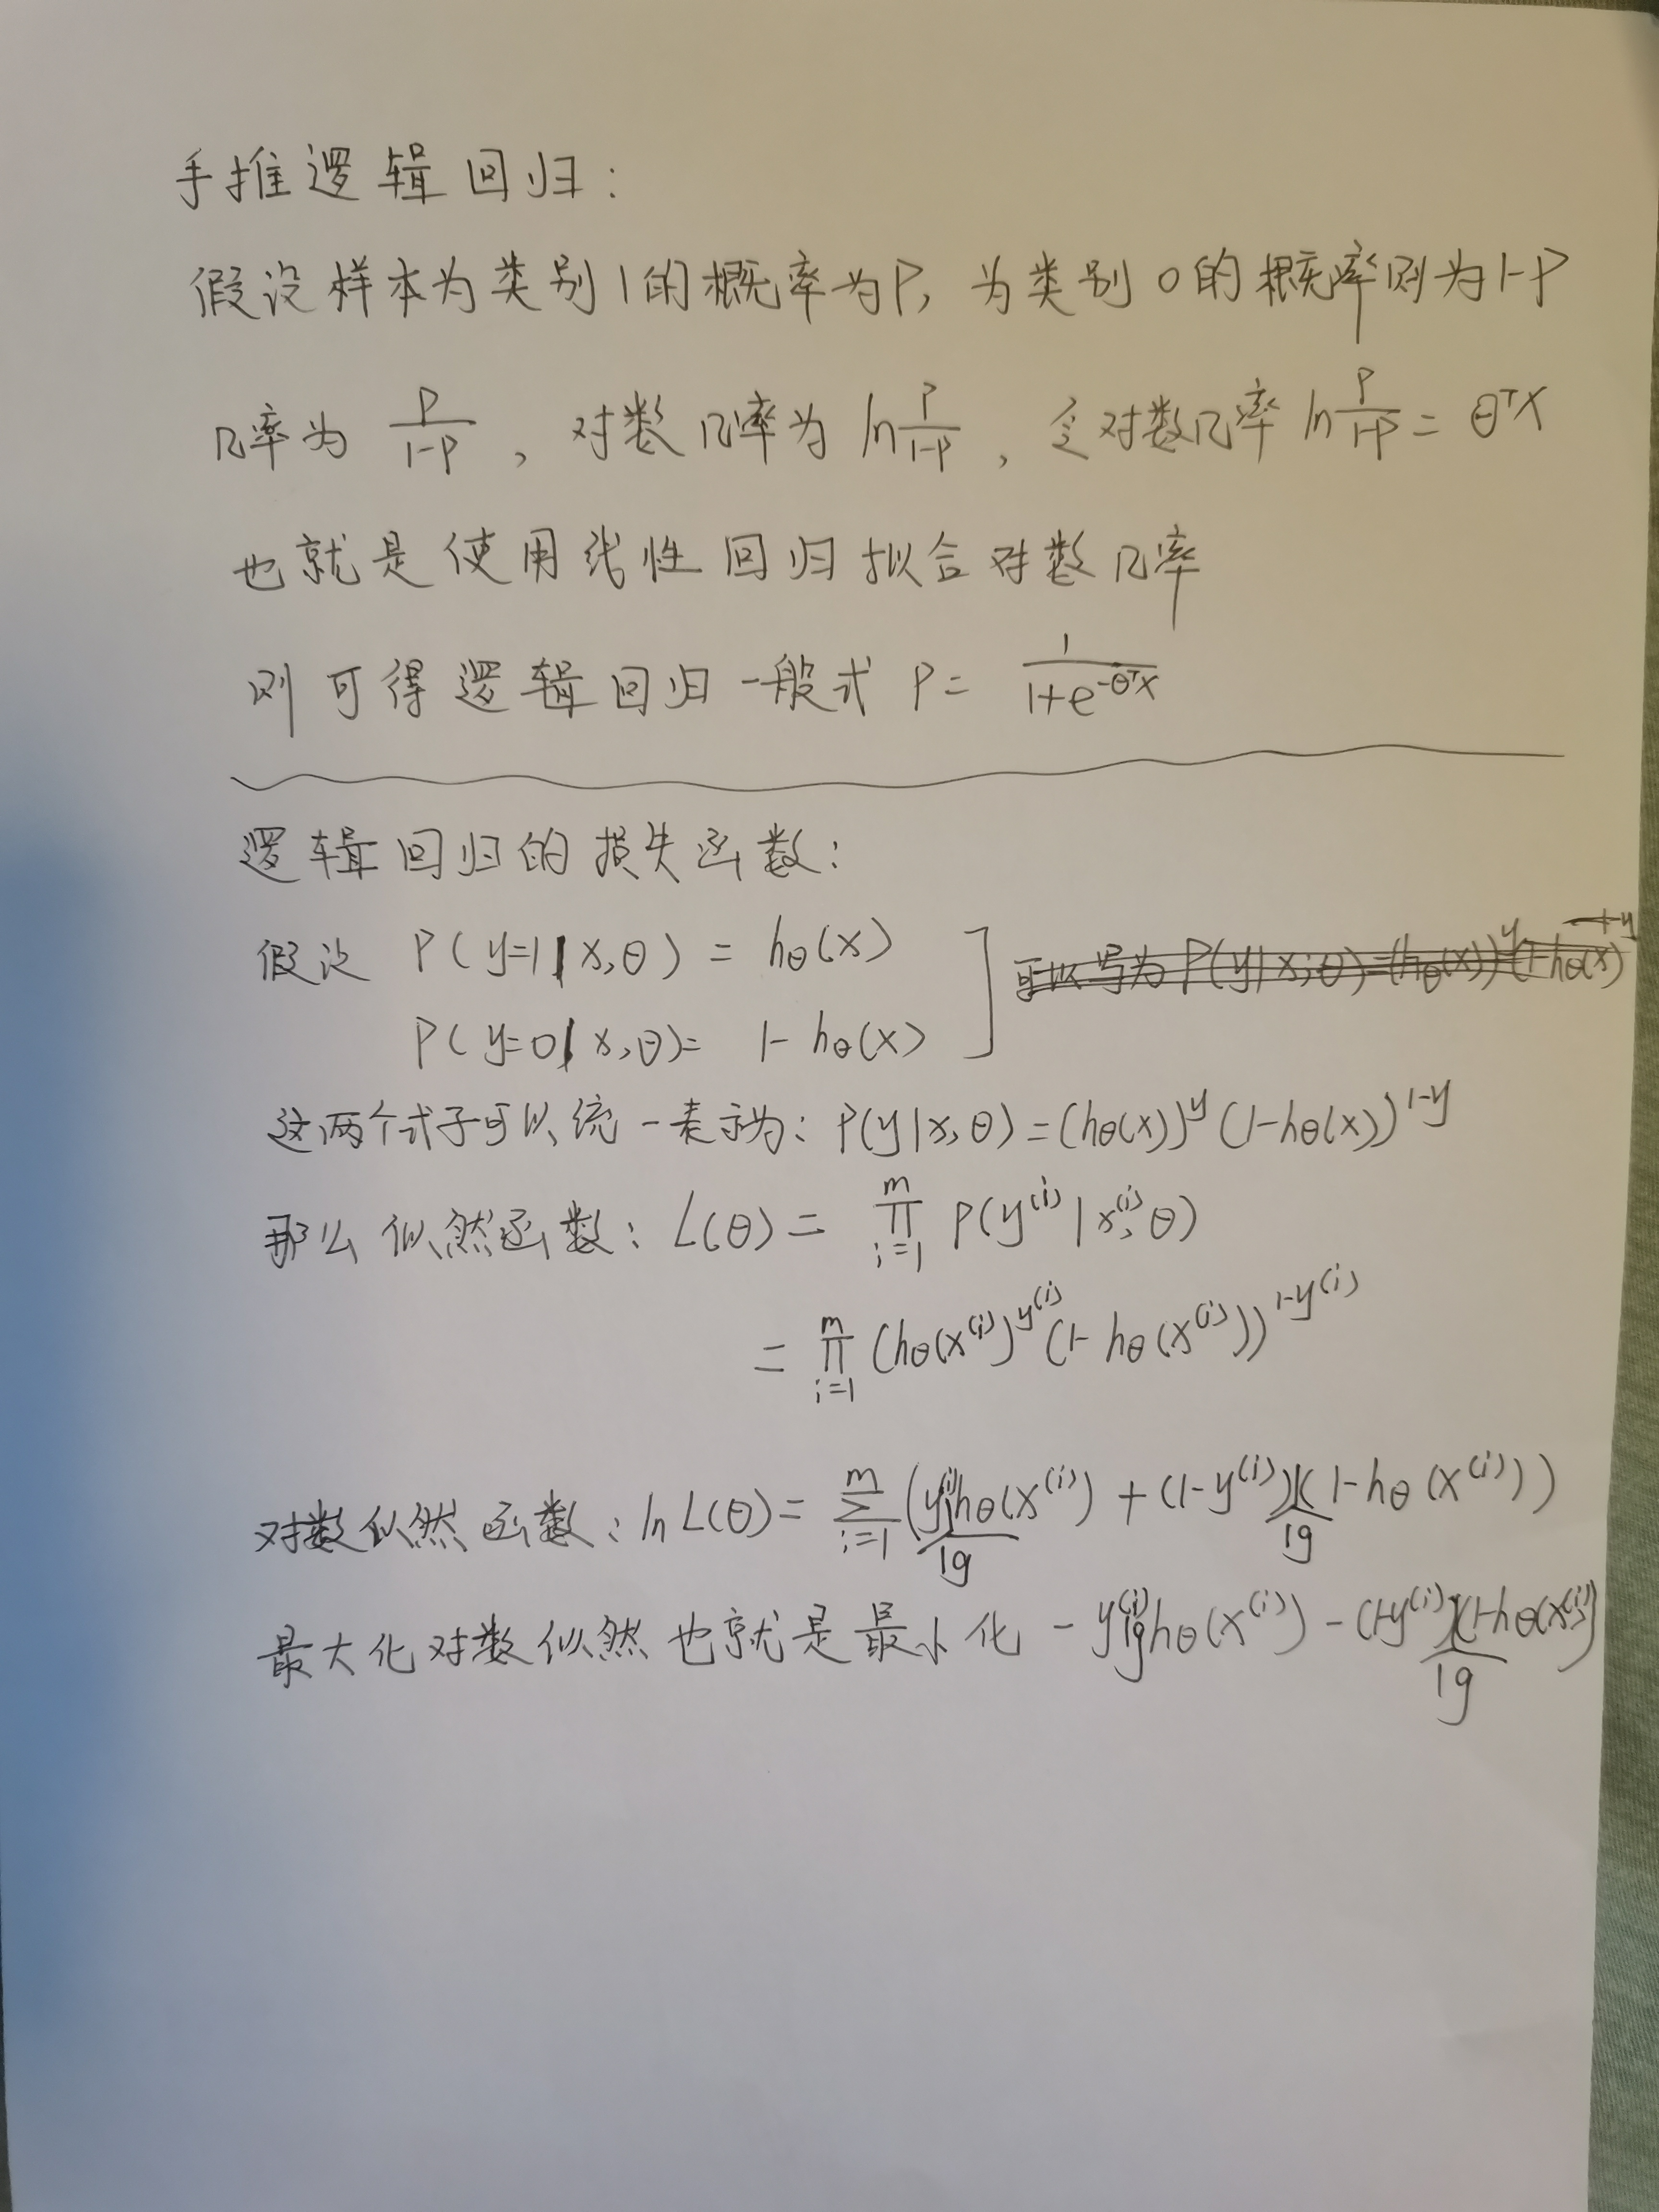 手推逻辑回归:
假设样本为类别1的概率为P, 为类别0的概率则为1-P
几率为 P/(1-P), 对数几率为 ln P/(1-P), 令对数几率 ln P/(1-P) = θᵀX
也就是使用线性回归拟合对数几率
则可得逻辑回归一般式 P = 1/(1+e^(-θᵀX))
逻辑回归的损失函数:
假设 P(y=1|x,θ) = hθ(x)
可以写为 P(y|x;θ)=(hθ(x))^y(1-hθ(x))^(1-y)
P(y=0|x,θ)= 1-hθ(x)
这两个式子可以统一表示为: P(y|x,θ)=(hθ(x))^y (1-hθ(x))^(1-y)
那么似然函数: L(θ) = ∏_{i=1}^{m} P(y^(i)|x^(i),θ)
= ∏_{i=1}^{m} (hθ(x^(i))^(y^(i)) (1-hθ(x^(i)))^(1-y^(i))
对数似然函数: ln L(θ) = ∑_{i=1}^{m} (y^(i) lg hθ(x^(i)) + (1-y^(i)) lg (1-hθ(x^(i)))
最大化对数似然也就是最小化 -y^(i) lg hθ(x^(i)) - (1-y^(i)) lg (1-hθ(x^(i))